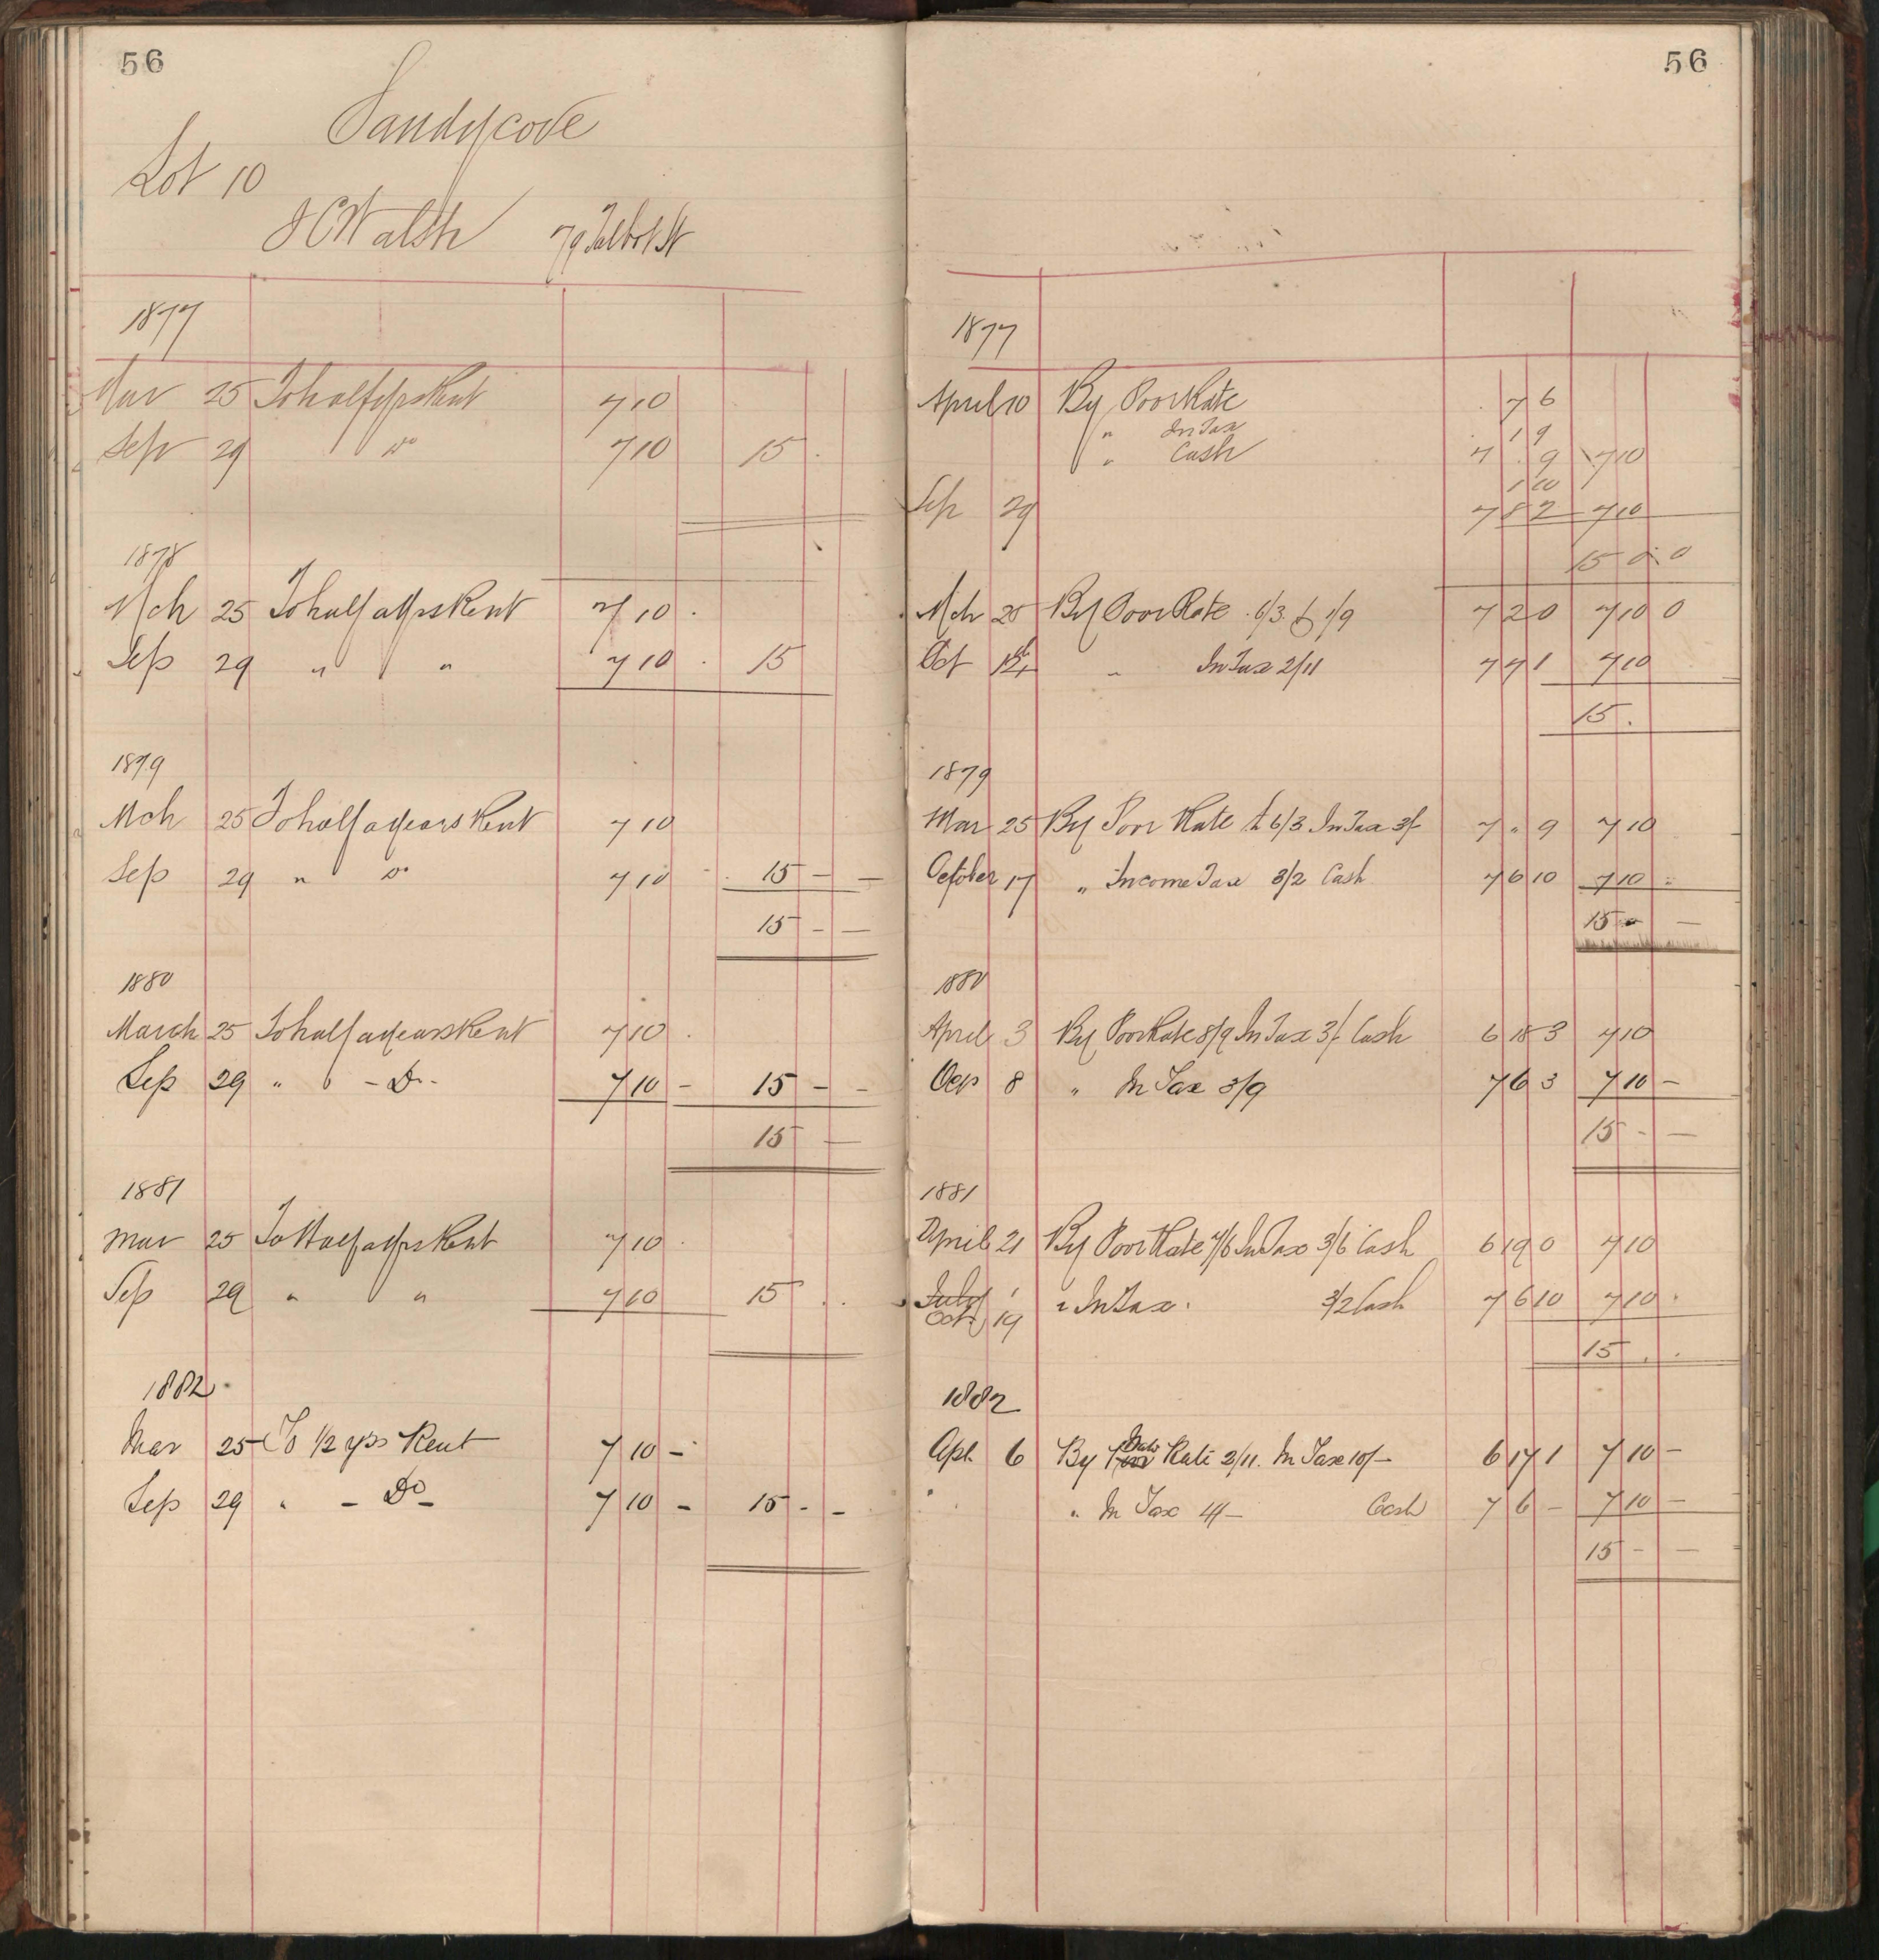 56
Sandycove
Lot 10
J C Walsh 79 Talbot St
1877
Mar 25 To half yrs Rent 7 10
Sep 29 Do 7 10 15
1878
Mch 25 To half a yrs Rent 7 10
Sep 29 " " 7 10 15
1879
Mch 25 To half a years Rent 7 10
Sep 29 " Do 7 10 15 - -
15 - -
1880
March 25 To half a years Rent 7 10
Sep 29 " - Do - 7 10 - 15 - -
15 -
1881
Mar 25 To Half a yrs Rent 7 10
Sep 29 " " 7 10 15
1882
Mar 25 To 1/2 yrs Rent 7 10 -
Sep 29 " - Do - 7 10 - 15 - -
56
1877
April 10 By Poor Rate 7 6
" In Tax 1 9
" Cash 7 . 9 7 10
1 10
Sep 29 7 8 2 7 10
15 0 0
Mch 25 By Poor Rate 6/3 1/9 7 2 0 7 10 0
Oct " In Tax 2/11 7 7 1 7 10
15 .
1879
Mar 25 By Poor Rate 6/3 In Tax 3/- 7 " 9 7 10
October 17 " Income Tax 3/2 Cash 7 6 10 7 10 -
15 - -
1880
April 3 By Poor Rate 8/9 In Tax 3/- Cash 6 18 3 7 10
8 " In Tax 3/9 7 6 3 7 10 -
15 - -
1881
April 21 By Poor Rate 7/6 In Tax 3/6 Cash 6 19 0 7 10
July 1 " In Tax. 3/2 Cash 7 6 10 7 10 .
Oct 19
15 . .
1882
Apl. 6 By Poor Rate 2/11. In Tax 10/- 6 17 1 7 10 -
" In Tax 4/- Cash 7 6 - 7 10 -
15 - -